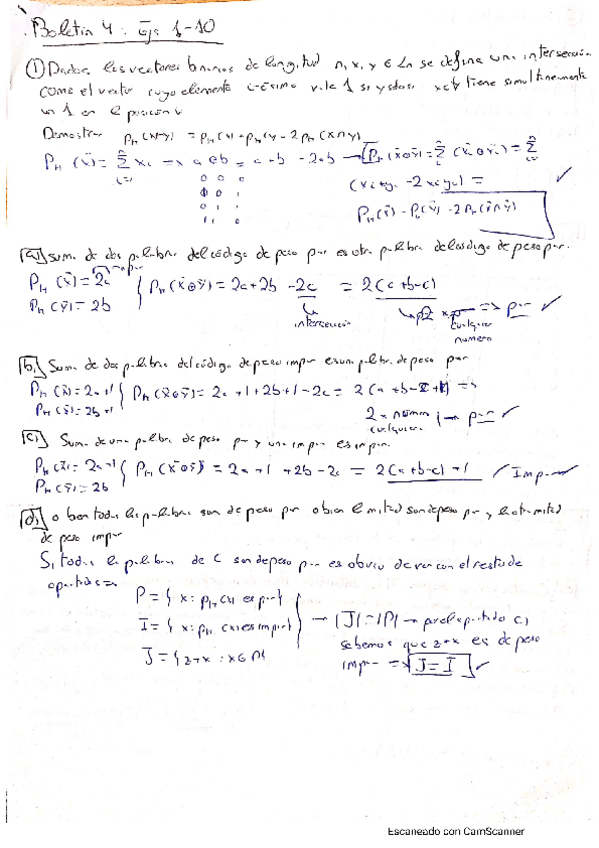 Boletín 4: Ejs 1-10
① Dados los vectores binarios de longitud n, x, y ∈ Ln se define una intersección
como el vector cuyo elemento i-ésimo vale 1 si y solo si x e y tiene simultineamente
un 1 en el posición i
Demostrar PH(x+y) = PH(x)+PH(y) - 2PH(x∩y)
PH(x̄) = Σ xi => a⊕b = a+b - 2ab → PH(x̄⊕ȳ) = Σ (x̄i⊕ȳi) = Σ
i=1
0 0 0
(xi+yi - 2xiyi) =
PH(x̄) - PH(ȳ) - 2PH(x̄∩ȳ)
1 1 0
a) suma de dos palabras del código de peso par es otra palabra del código de peso par.
PH(x̄) = 2a
PH(ȳ) = 2b
PH(x̄⊕ȳ) = 2a+2b - 2c = 2(a+b-c)
intersección
2 x cualquier numero => par ✓
b) Suma de dos palabras del código de peso impar es un palabra de peso par
PH(x̄) = 2a+1
PH(ȳ) = 2b+1
PH(x̄⊕ȳ) = 2a+1+2b+1-2c =
=>
2 x número cualquiera → par ✓
c) Suma de una palabra de peso par y una impar es impar.
PH(x̄) = 2a+1
PH(ȳ) = 2b
PH(x̄⊕ȳ) = 2a+1+2b-2c = 2(a+b-c)+1 ✓ Impar
d) o bien todas las palabras son de peso par o bien la mitad son de peso par y la otra mitad
de peso impar
Si todas las palabras de C son de peso par es obvio de ver con el resto de
apartados
P = { x: PH(x) es par }
I = { x: PH(x) es impar }
J = { z+x : x∈P }
→ |J| = |P| → por el apartado c)
sabemos que z+x es de peso
impar => J = I ✓
Escaneado con CamScanner